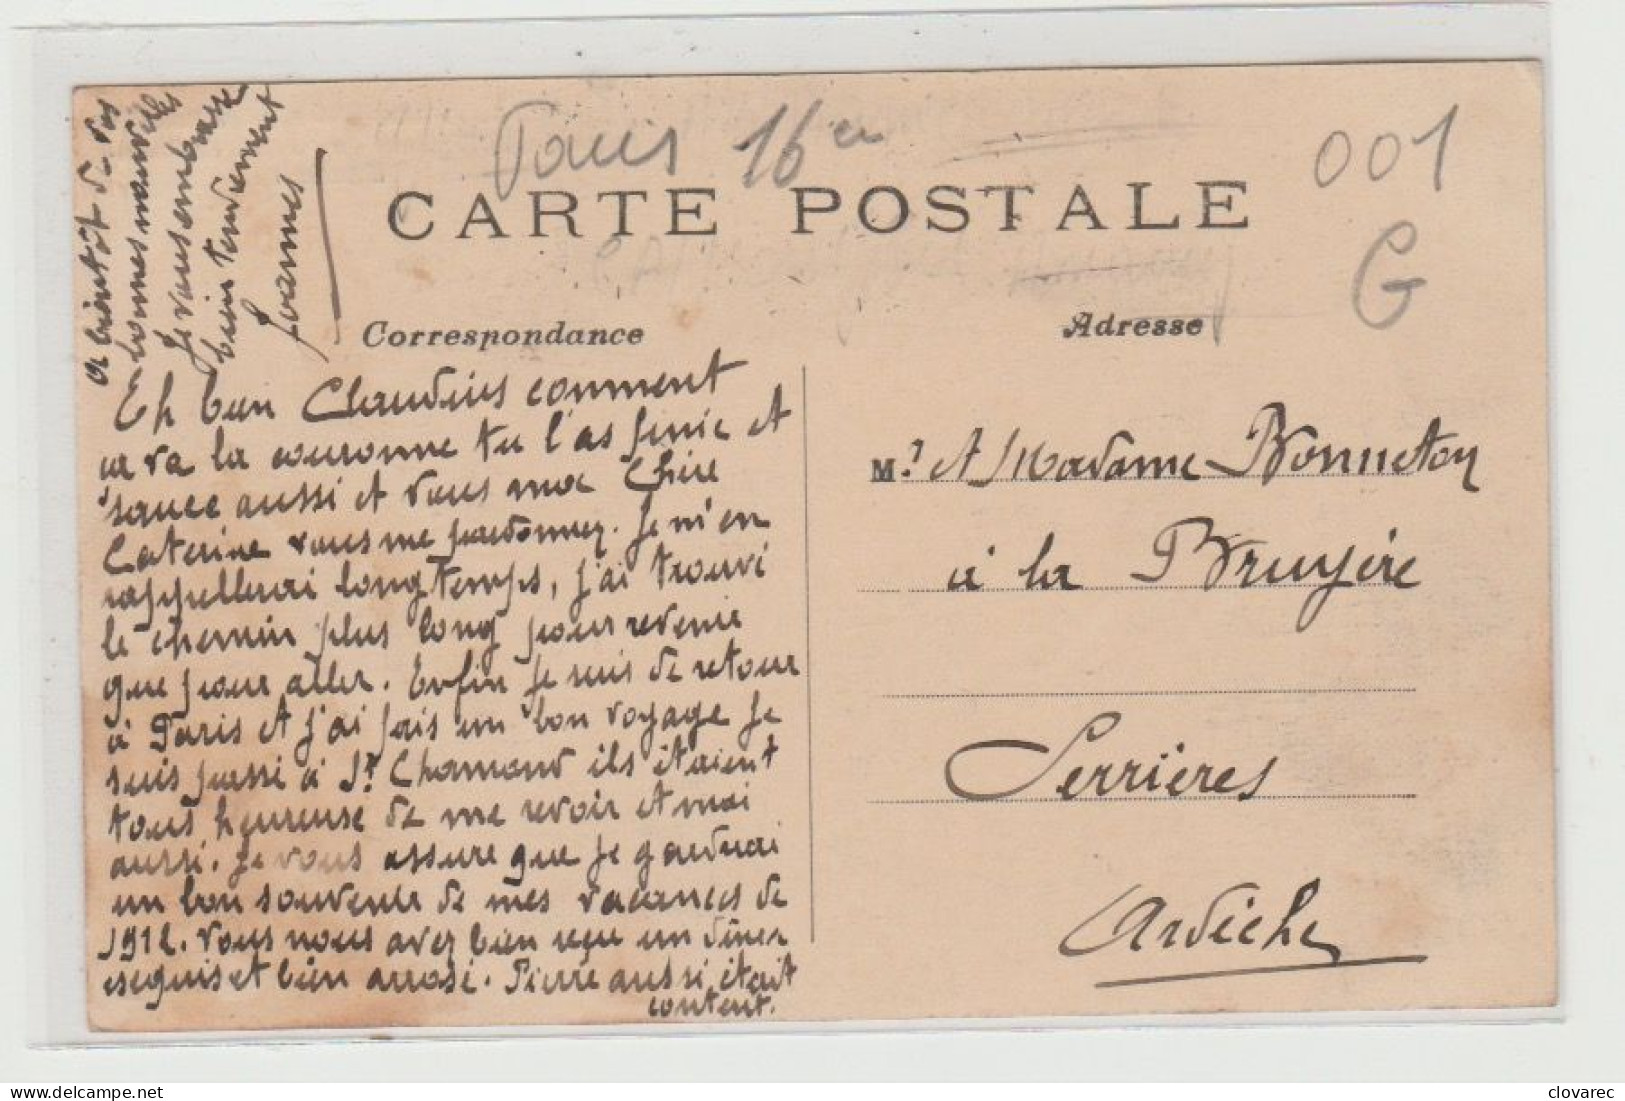 Paris 16e
001
G
CARTE POSTALE
Correspondance
Adresse
Eh bien Claudius comment
ça va la couronne tu l'as finie et
sauce aussi et vous ma Chère
Caterine vous me pardonnez. Je m'en
rappellerai longtemps, j'ai trouvé
le chemin plus long pour revenir
que pour aller. Enfin je suis de retour
à Paris et j'ai fais un bon voyage je
suis passé à St Chamond ils étaient
tous heureuse de me revoir et moi
aussi. Je vous assure que je garderai
un bon souvenir de mes vacances de
1912. Vous nous avez bien reçu un dîner
esequis et bien arrosé. Pierre aussi était
content.
a bientôt de vos
bonnes nouvelles
Je vous embrasse
bien tendrement
Joannes
M.r et Madame Bonneton
à la Bruyère
Serrières
Ardèche
clovarec